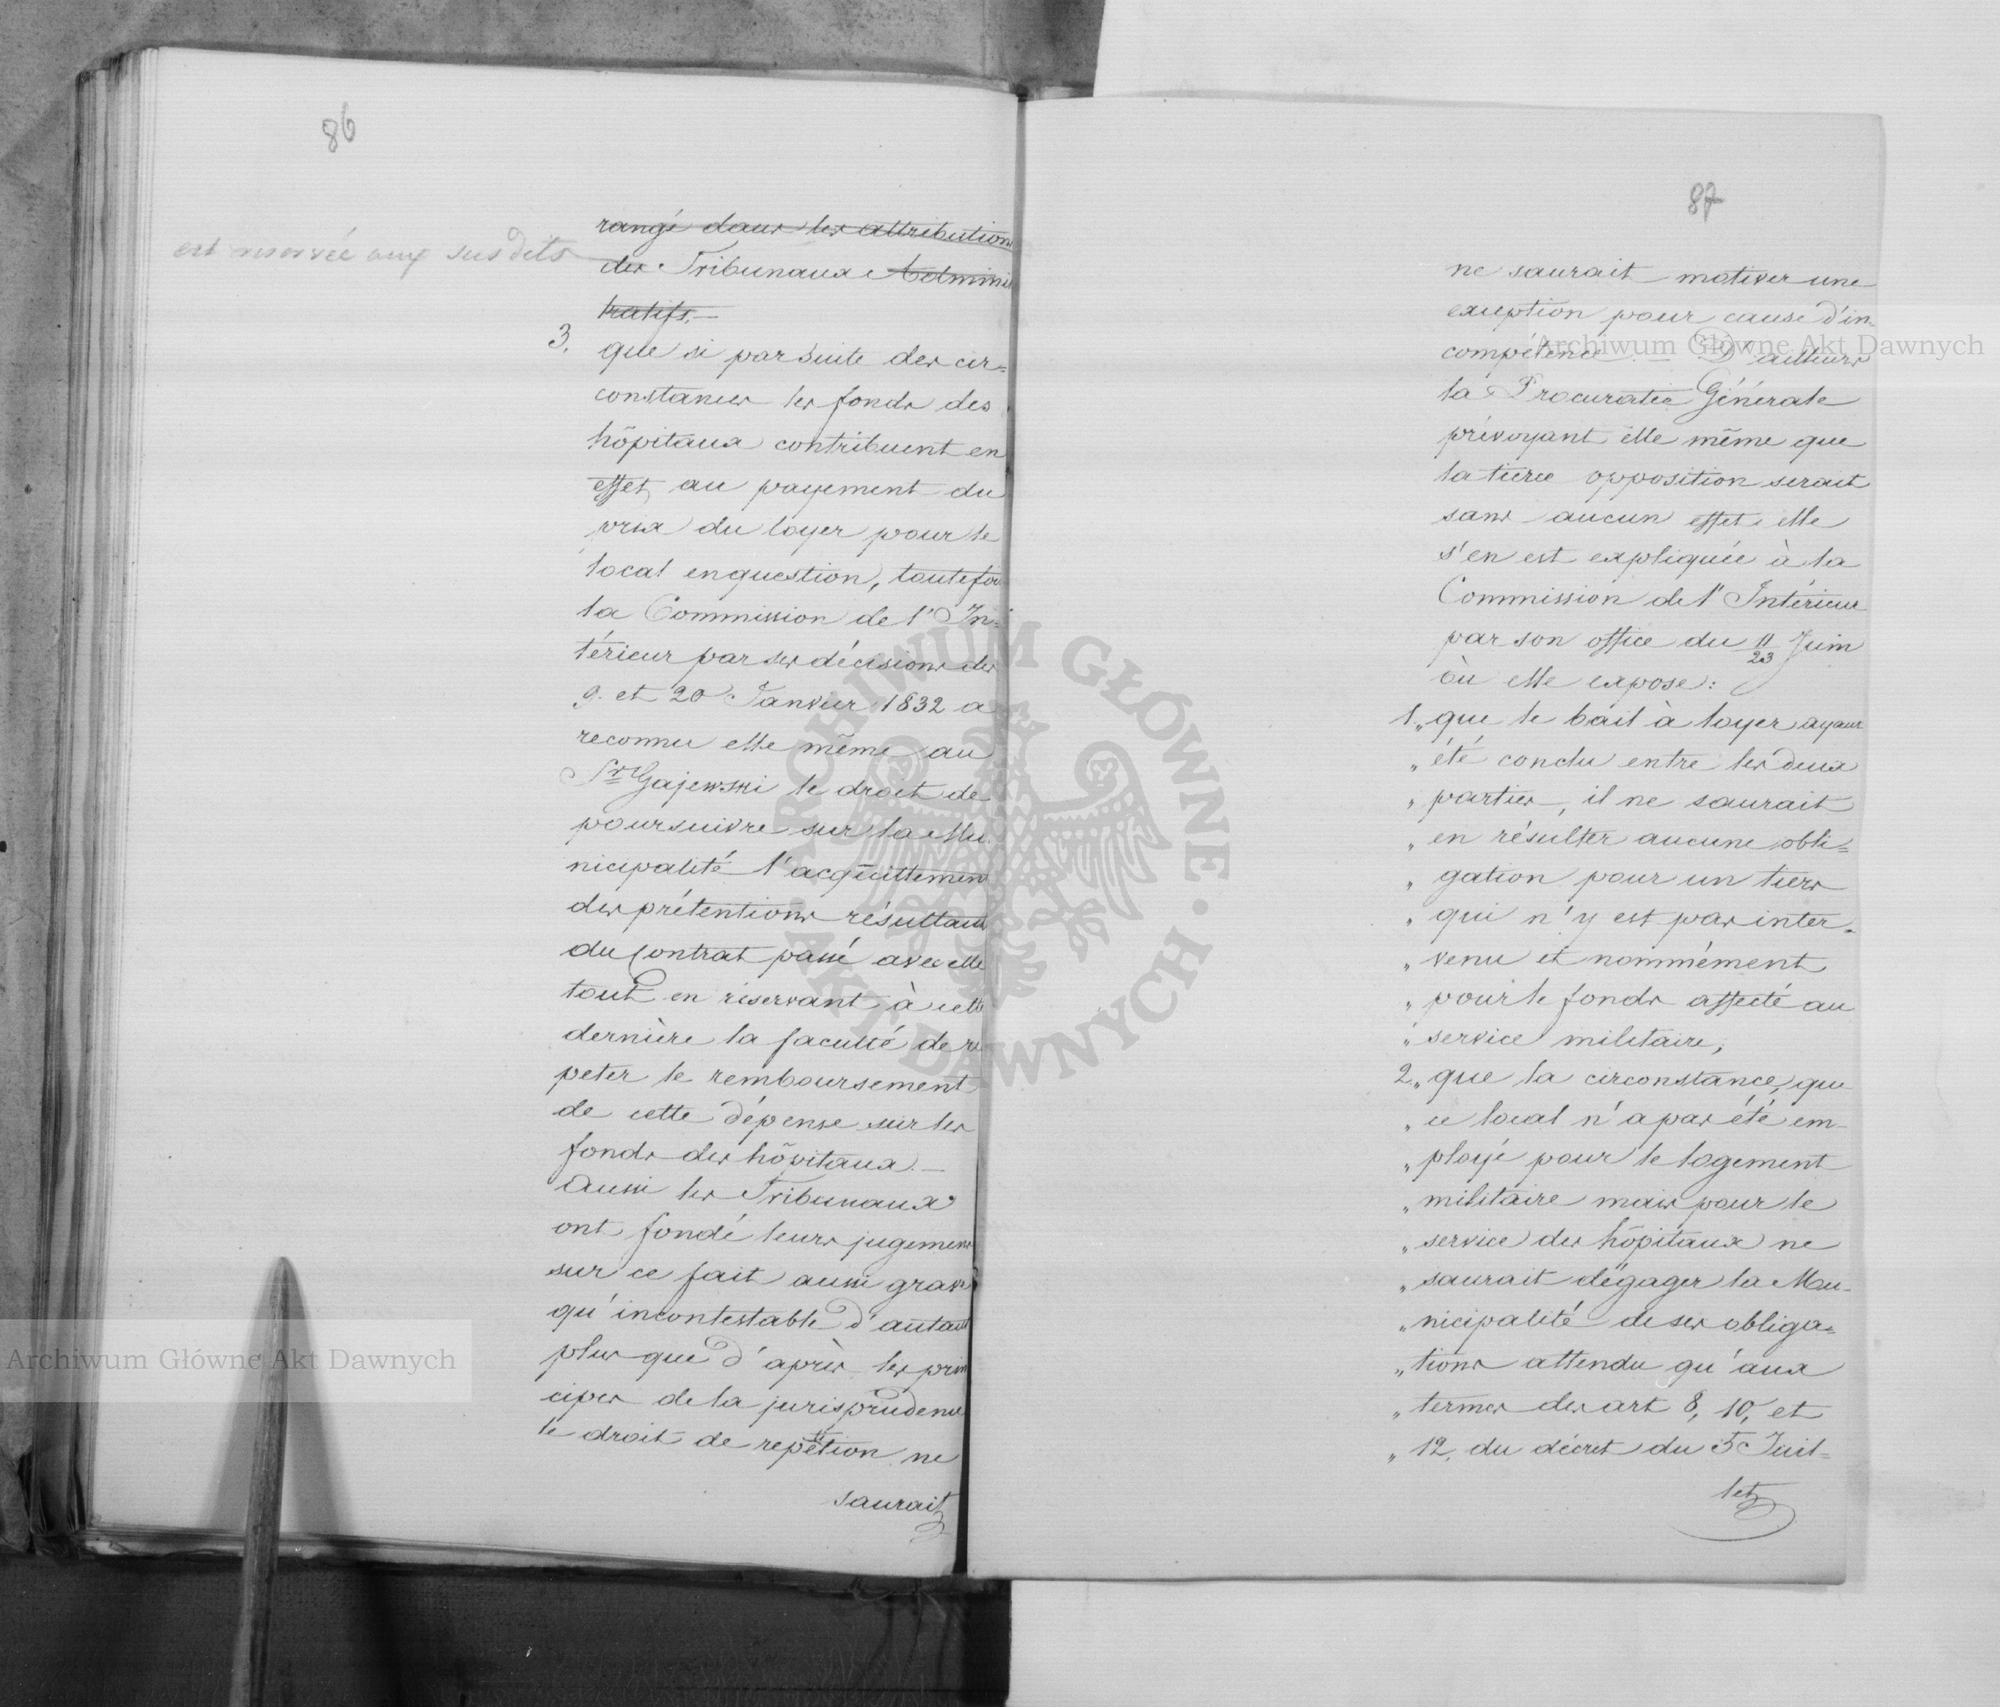 86
est reservée aux sus dits
rangé dans les attributions
des Tribunaux Adminis
tratifs.—
3. que si par suite des cir=
constances les fonds des
hôpitaux contribuent en
effet au payement du
prix du loyer pour le
local en question, toutefois
la Commission de l'In=
térieur par ses décisions des
9. et 20 Janvier 1832 a
reconnu elle même au
Sr Gajewski le droit de
poursuivre sur la Mu
nicipalité l'acquittement
des prétentions résultant
du Contrat passé avec elle
tout en réservant à cette
dernière la faculté de re
peter le remboursement
de cette dépense sur les
fonds des hôpitaux.—
Aussi les Tribunaux
ont fondé leurs jugemens
sur ce fait aussi grave
qu'incontestable d'autant
plus que d'après les prin
cipes de la jurisprudence
le droit de repetition ne
saurait
87
ne saurait motiver une
exception pour cause d'in=
compétence. — D'ailleurs
la Procuratie Générale
prévoyant elle même que
la tierce opposition serait
sans aucun effet, elle
s'en est expliquée à la
Commission de l'Intérieur
par son office du 11/23 Juin
où elle expose:
1. „que le bail à loyer ayant
„été conclu entre les deux
„parties, il ne saurait
„en résulter aucune obli=
„gation pour un tiers
„qui n'y est pas inter=
„venu et nommément
„pour le fonds affecté au
„service militaire,
2. „que la circonstance, que
„ce local n'a pas été em=
„ployé pour le logement
„militaire mais pour le
„service des hôpitaux ne
„saurait dégager la Mu=
„nicipalité de ses obliga=
„tions attendu qu'aux
„termes des art 8, 10, et
„12, du décret du 5 Juil=
let
Archiwum Główne Akt Dawnych
Archiwum Główne Akt Dawnych
ARCHIWUM GŁÓWNE · AKT DAWNYCH ·